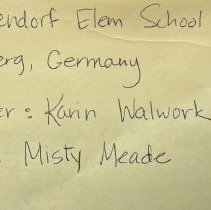 endorf Elem School
erg, Germany
er: Karin Walwork
. Misty Meade